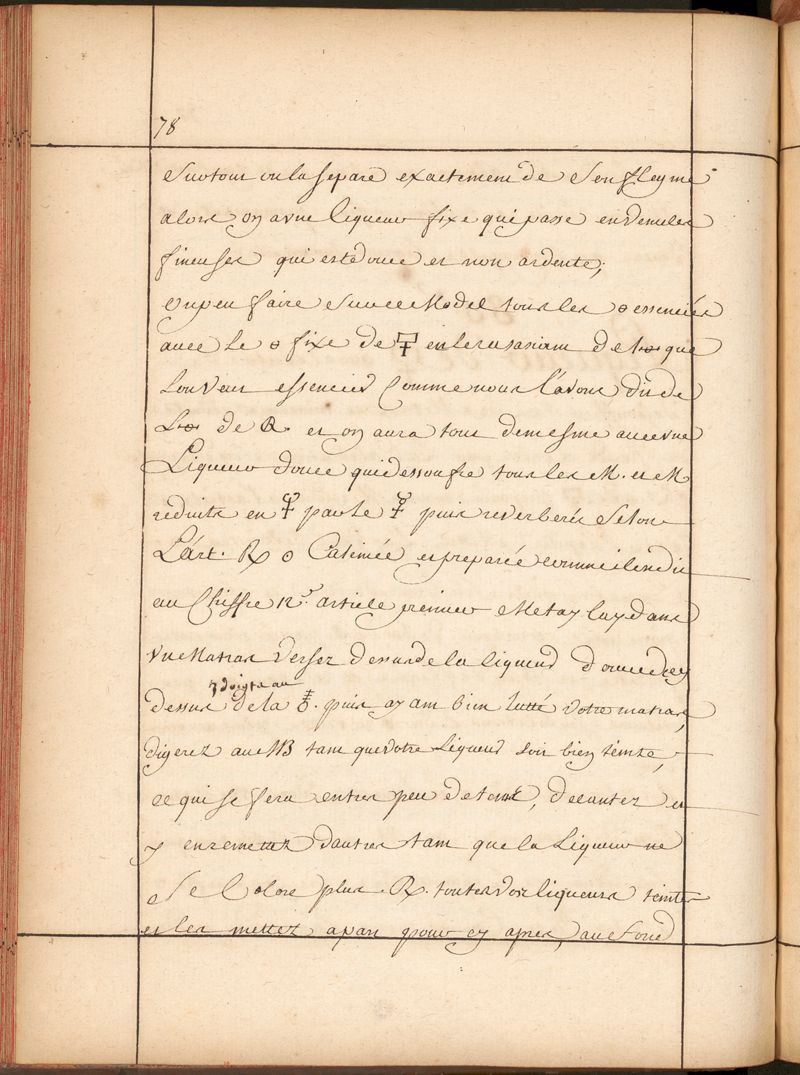 78
Surtout on la separe exactement de son flegme
alors on a vne liqueur fixe qui passe en
qui est douce et non ardente;
on peu faire sur ce Model tous les
avec le fixe de que
lon veut essencier Comme nous l'avons dit de
de R. et on aura tout demesme avec vne
Liqueur douce qui dessoufre tous les M. et M
reduits en ☿ par le ☿ puis reverberés selon
L'art. R Calcinée et preparée comme il en dit
au Chiffre 12. article premier Mettez la dans
vn Matras versez dessus de la liqueur douce
7 doigts au
dessus de la . puis ayant bien lutté votre matras,
digerez au MB tant que votre Liqueur soit bien teinte,
ce qui se fera en tres peu de tems, decantez et
y en remettez d'autres tant que la Liqueur ne
se Colore plus. R. toutes vos liqueurs teintes
et les mettez apart pour cy apres, au fond